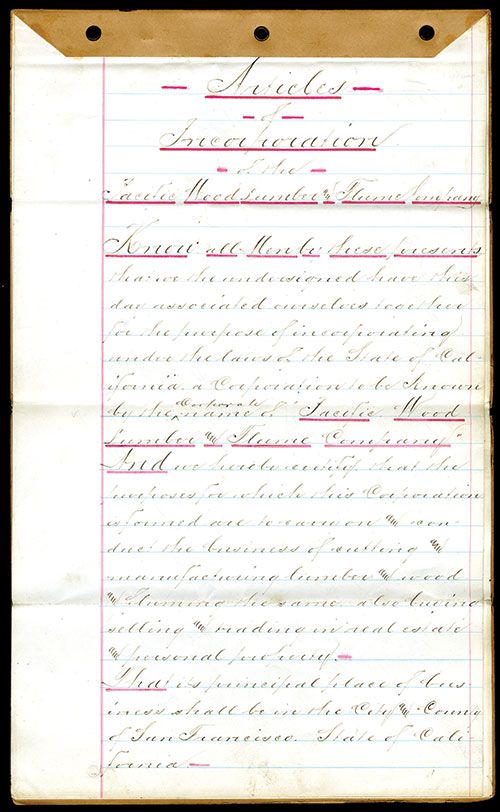 Articles
of
Incorporation
of the
Pacific Wood Lumber and Flume Company
Know all Men by these presents
that we the undersigned have this
day associated ourselves together
for the purpose of incorporating
under the laws of the State of Cal-
ifornia a Corporation to be known
by the corporate name of "Pacific Wood
Lumber and Flume Company"
And we hereby certify that the
purposes for which this Corporation
is formed are to carry on and con-
duct the business of cutting and
manufacturing lumber and wood
and fluming the same. also buying
selling and trading in real estate
and personal property.
That its principal place of bus
iness shall be in the City and County
of San Francisco. State of Cali
fornia